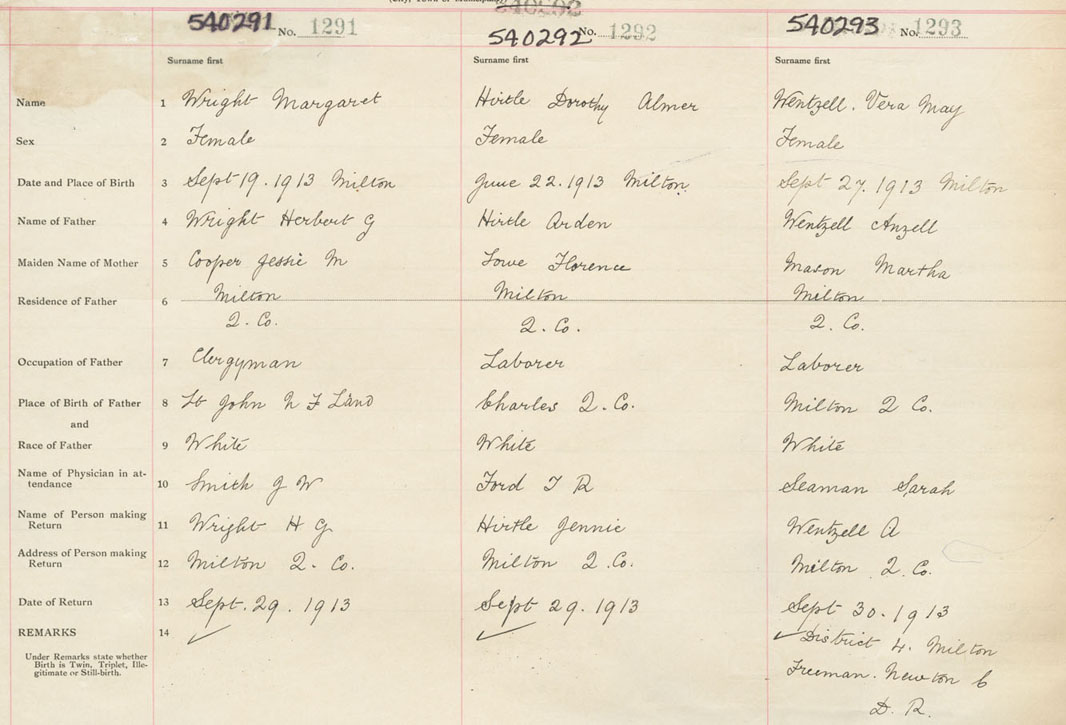 540291 No. 1291 540292 No. 1292 540293 No. 1293
Surname first Surname first Surname first
Name 1 Wright Margaret Hirtle Dorothy Almer Wentzell. Vera May
Sex 2 Female Female Female
Date and Place of Birth 3 Sept 19. 1913 Milton June 22. 1913 Milton Sept 27. 1913 Milton
Name of Father 4 Wright Herbert G Hirtle Arden Wentzell Anzell
Maiden Name of Mother 5 Cooper Jessie M Lowe Florence Mason Martha
Residence of Father 6 Milton Milton Milton
Q. Co. Q. Co. Q. Co.
Occupation of Father 7 Clergyman Laborer Laborer
Place of Birth of Father 8 St John N F Land Charles Q. Co. Milton Q Co.
and
Race of Father 9 White White White
Name of Physician in at-
tendance 10 Smith J W Ford T R Seaman Sarah
Name of Person making
Return 11 Wright H G Hirtle Jennie Wentzell A
Address of Person making
Return 12 Milton Q. Co. Milton Q. Co. Milton Q. Co.
Date of Return 13 Sept. 29. 1913 Sept 29. 1913 Sept 30. 1913
REMARKS 14 District 4. Milton
Under Remarks state whether
Birth is Twin, Triplet, Ille-
gitimate or Still-birth.
Freeman. Newton C
D. R.